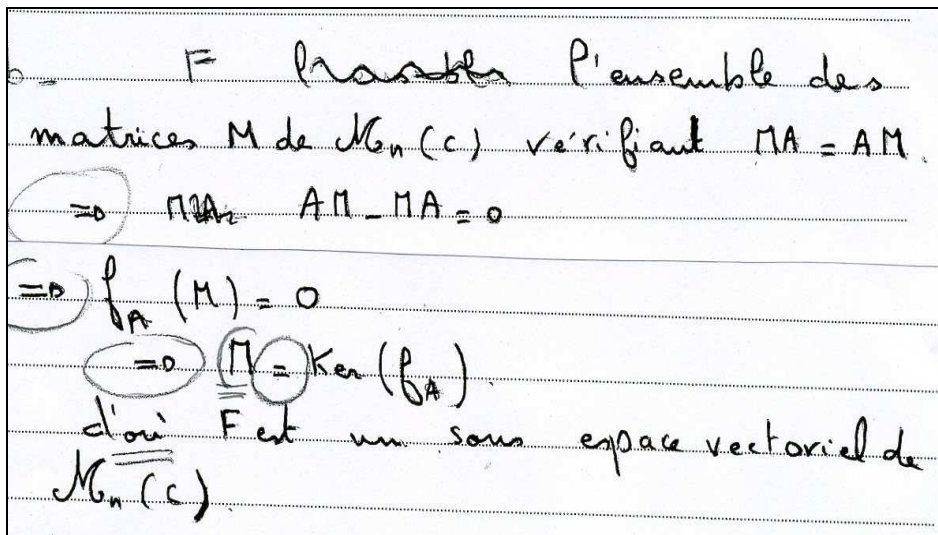 b- F l'ensemble des
matrices M de Mn(C) vérifiant MA = AM.
=> AM - MA = 0
=> fA (M) = 0
=> M = Ker (fA).
d'où F est un sous espace vectoriel de
Mn (C)